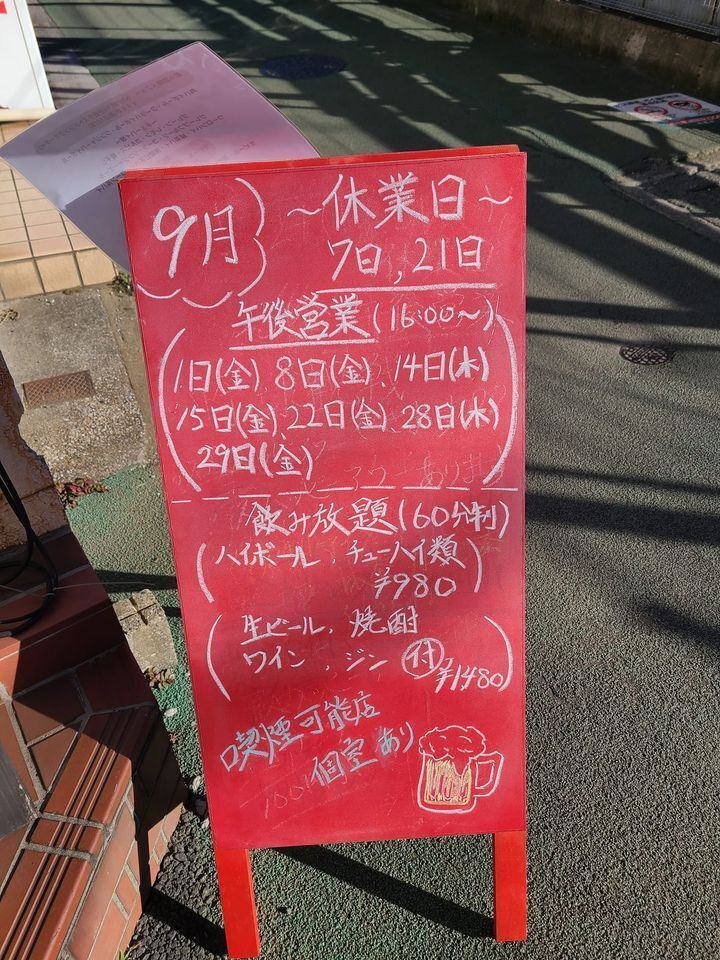 9月
～休業日～
7日,21日
午後営業(16:00～)
1日(金)、8日(金)、14日(木)
15日(金)、22日(金)、28日(木)
29日(金)
飲み放題(60分制)
ハイボール、チューハイ類
¥980
生ビール、焼酎
ワイン、ジン 付 ¥1480
喫煙可能店
個室あり